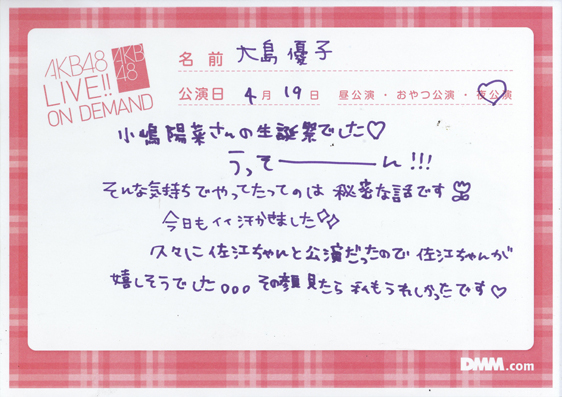 AKB48
LIVE!!
ON DEMAND
AKB
48
名前 大島優子
公演日 4月19日 昼公演・おやつ公演・夜公演
小嶋陽菜さんの生誕祭でした♡
うってーーん!!!
そんな気持ちでやってたってのは秘密な話です
今日もイイ汗かきました
久々に佐江ちゃんと公演だったので佐江ちゃんが
嬉しそうでした。。。その顔見たら私もうれしかったです♡
DMM.com